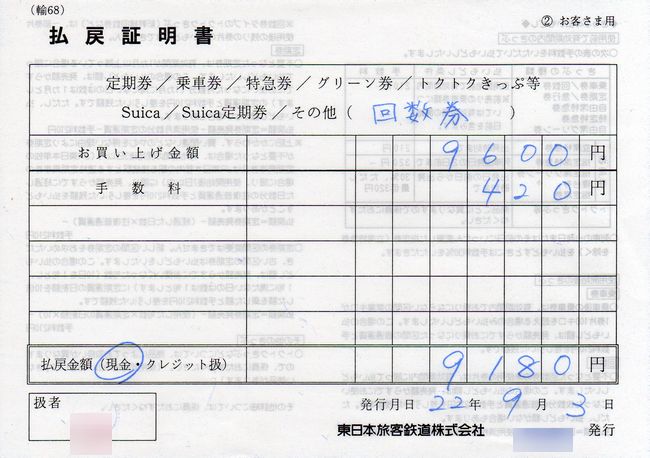 (輸68)
② お客さま用
払戻証明書
定期券／乗車券／特急券／グリーン券／トクトクきっぷ等
Suica／Suica定期券／その他（ 回数券 ）
お買い上げ金額 9600 円
手数料 420 円
払戻金額（現金・クレジット扱） 9180 円
扱者
発行月日 22 年 9 月 3 日
東日本旅客鉄道株式会社 発行